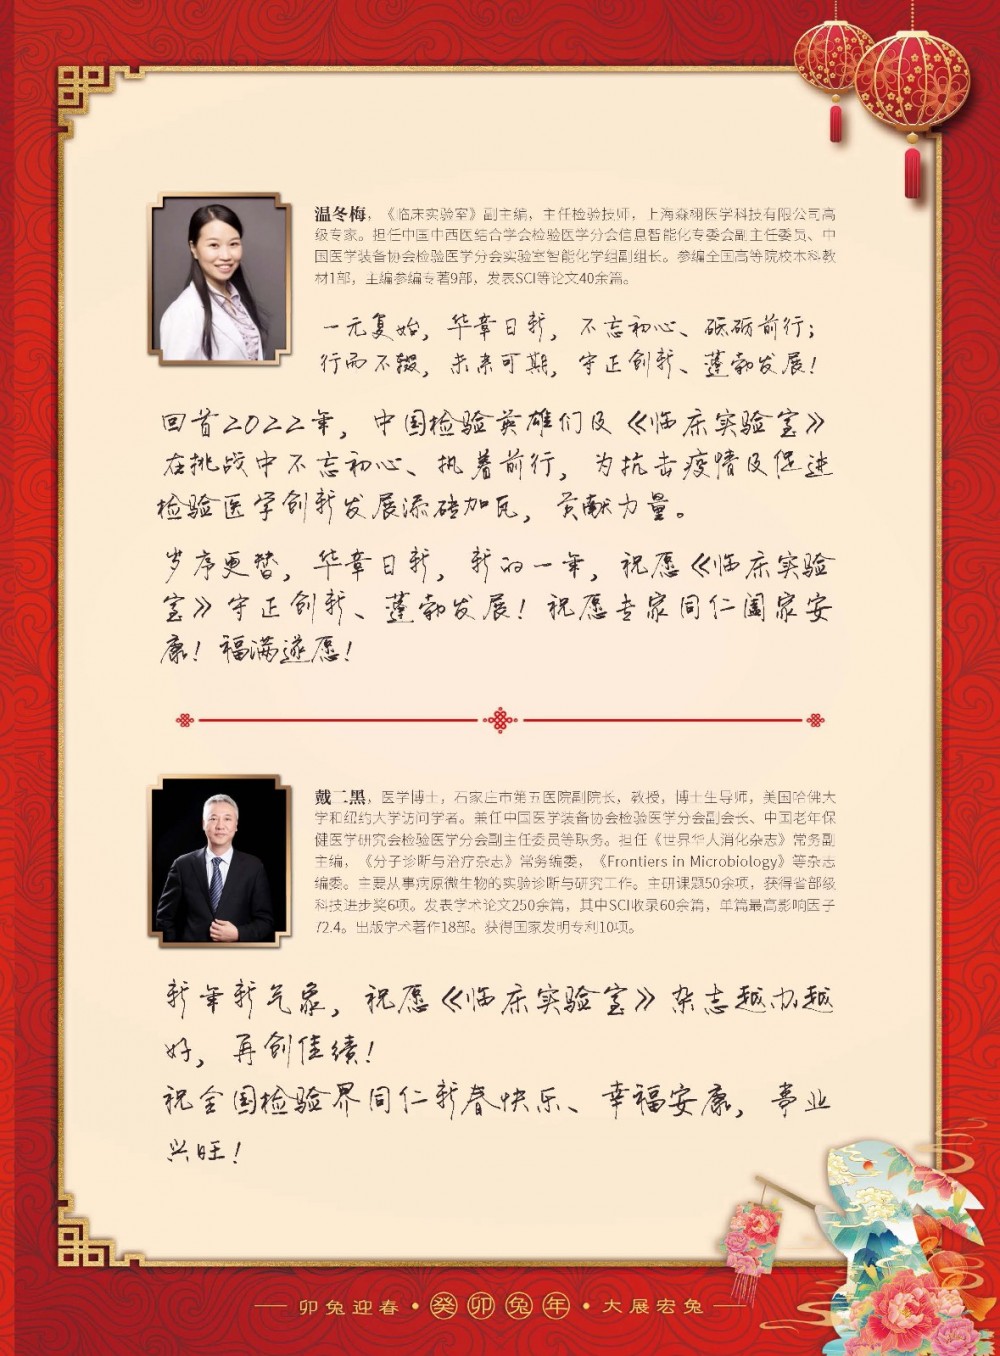 温冬梅，《临床实验室》副主编，主任检验技师，上海森栩医学科技有限公司高
级专家。担任中国中西医结合学会检验医学分会信息智能化专委会副主任委员、中
国医学装备协会检验医学分会实验室智能化学组副组长。参编全国高等院校本科教
材1部，主编参编专著9部，发表SCI等论文40余篇。
一元复始，华章日新，不忘初心、砥砺前行；
行而不辍，未来可期，守正创新、蓬勃发展！
回首2022年，中国检验英雄们及《临床实验室》
在挑战中不忘初心、执着前行，为抗击疫情及促进
检验医学创新发展添砖加瓦，贡献力量。
岁序更替，华章日新，新的一年，祝愿《临床实验
室》守正创新、蓬勃发展！祝愿专家同仁阖家安
康！福满遂愿！
戴二黑，医学博士，石家庄市第五医院副院长，教授，博士生导师，美国哈佛大
学和纽约大学访问学者。兼任中国医学装备协会检验医学分会副会长、中国老年保
健医学研究会检验医学分会副主任委员等职务。担任《世界华人消化杂志》常务副
主编，《分子诊断与治疗杂志》常务编委，《Frontiers in Microbiology》等杂志
编委。主要从事病原微生物的实验诊断与研究工作。主研课题50余项，获得省部级
科技进步奖6项。发表学术论文250余篇，其中SCI收录60余篇，单篇最高影响因子
72.4。出版学术著作18部。获得国家发明专利10项。
新年新气象，祝愿《临床实验室》杂志越办越
好，再创佳绩！
祝全国检验界同仁新春快乐、幸福安康，事业
兴旺！
卯兔迎春·癸卯兔年·大展宏兔